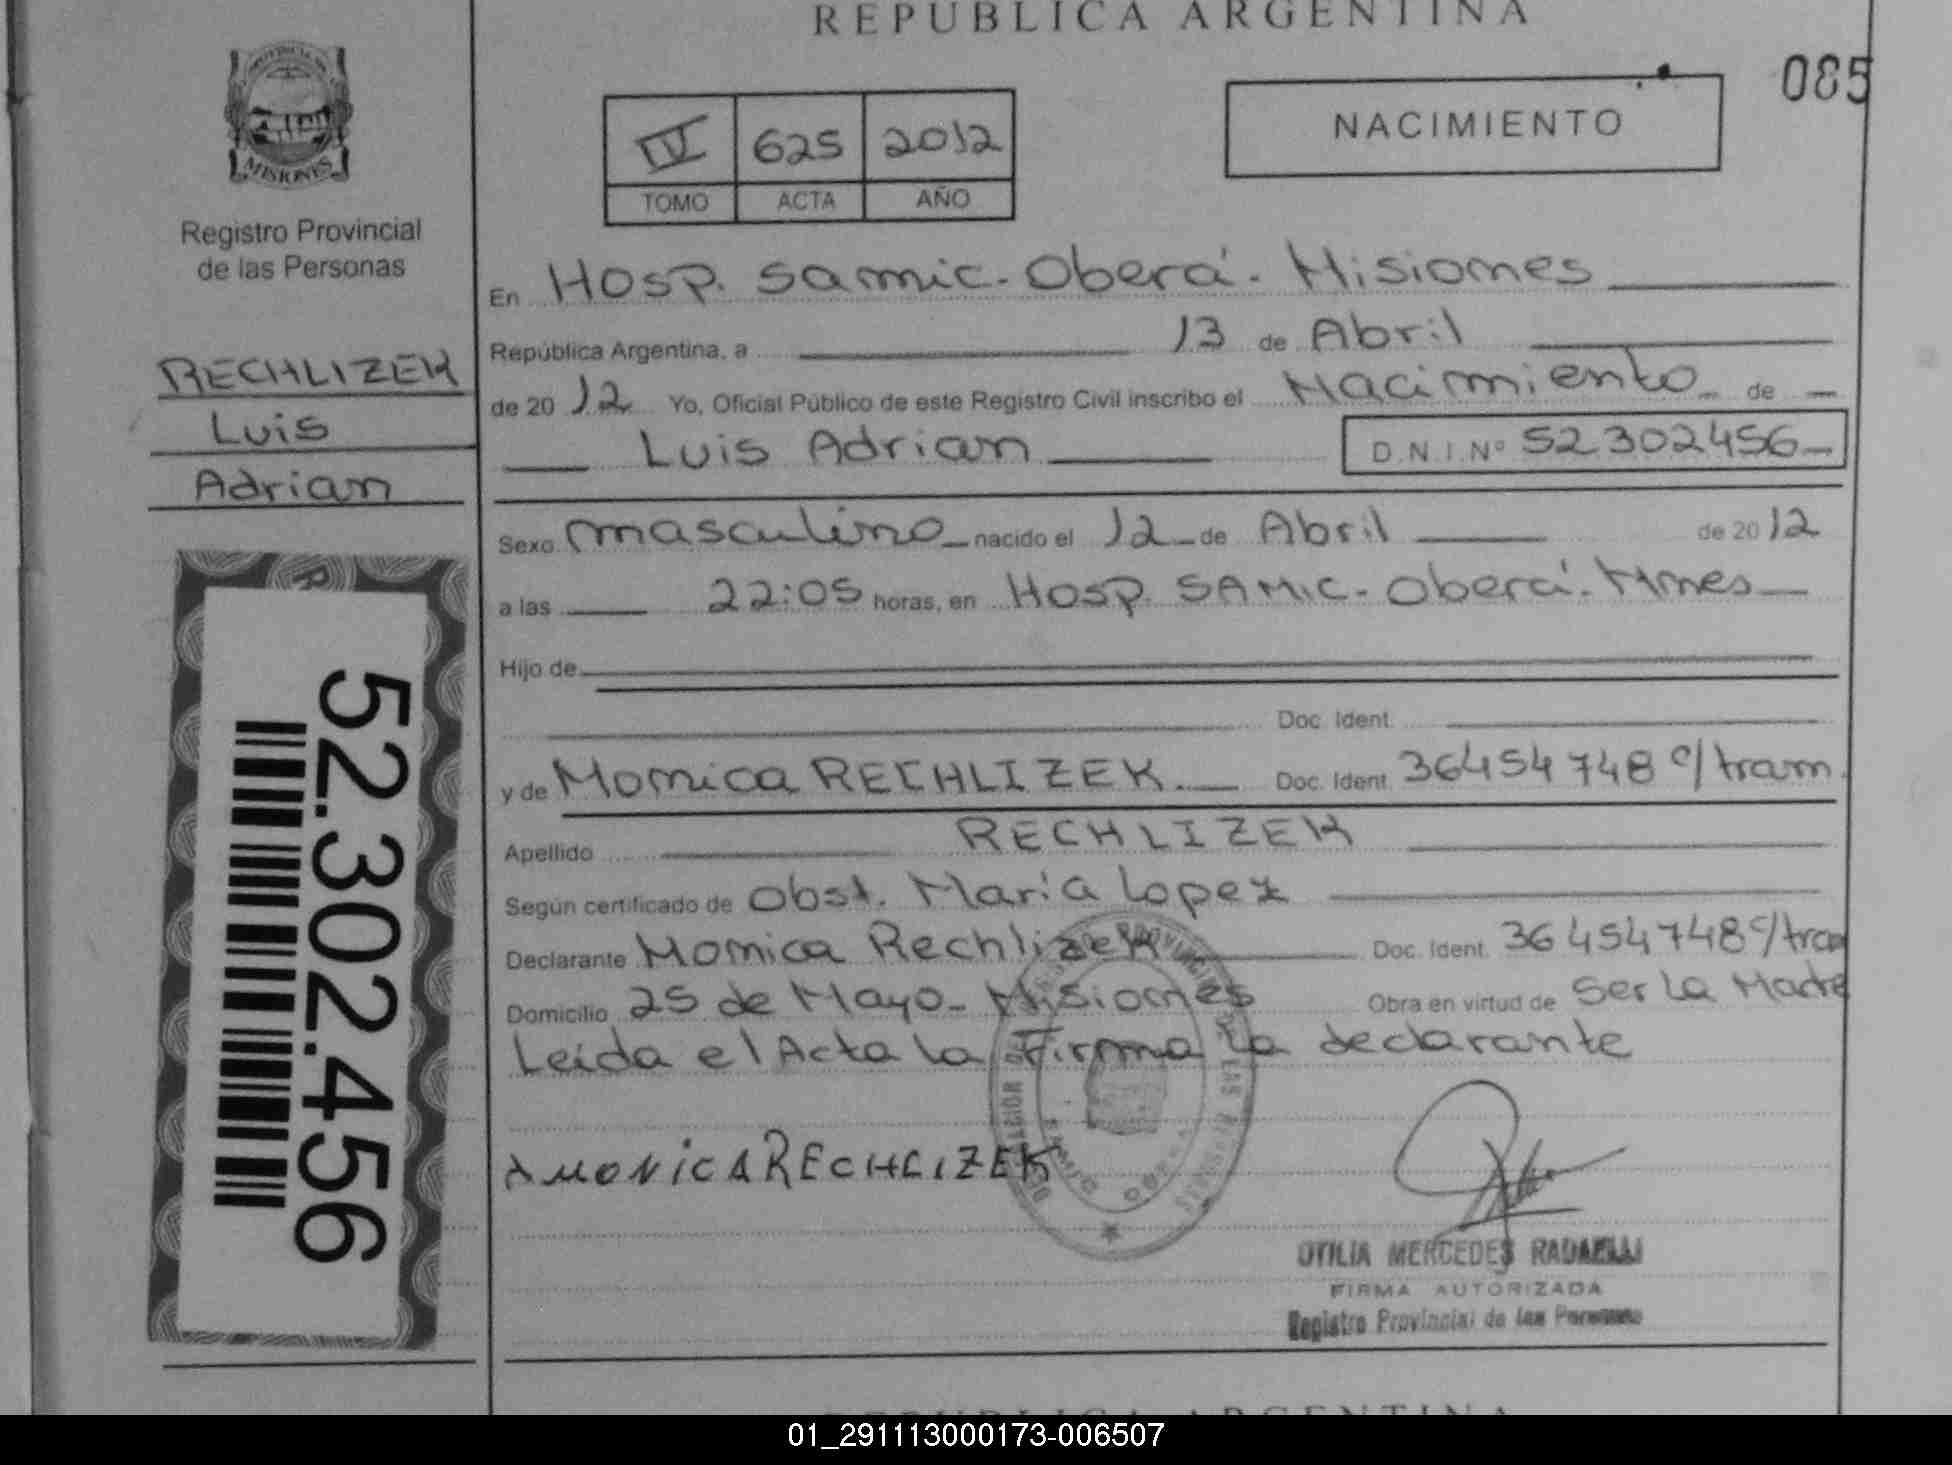 REPUBLICA ARGENTINA
085
PROVINCIA DE
MISIONES
Registro Provincial
de las Personas
IV 625 2012
TOMO ACTA AÑO
NACIMIENTO
En Hosp. Samic. Oberá. Misiones
República Argentina, a 13 de Abril
de 2012 Yo, Oficial Público de este Registro Civil inscribo el Nacimiento de
Luis Adrian D.N.I.Nº 52302456
RECHLIZEK
Luis
Adrian
Sexo masculino nacido el 12 de Abril de 2012
a las 22:05 horas, en Hosp. SAMIC. Oberá. Mnes
Hijo de
Doc. Ident.
y de Monica RECHLIZEK. Doc. Ident. 36454748 c/tram.
Apellido RECHLIZEK
Según certificado de Obst. María Lopez
Declarante Monica Rechlizek Doc. Ident. 36454748 c/tram
Domicilio 25 de Mayo - Misiones Obra en virtud de Ser La Madre
Leída el Acta la Firma la declarante
52.302.456
MONICA RECHLIZEK
OTILIA MERCEDES RADAELLI
FIRMA AUTORIZADA
Registro Provincial de las Personas
REPUBLICA ARGENTINA
01_291113000173-006507